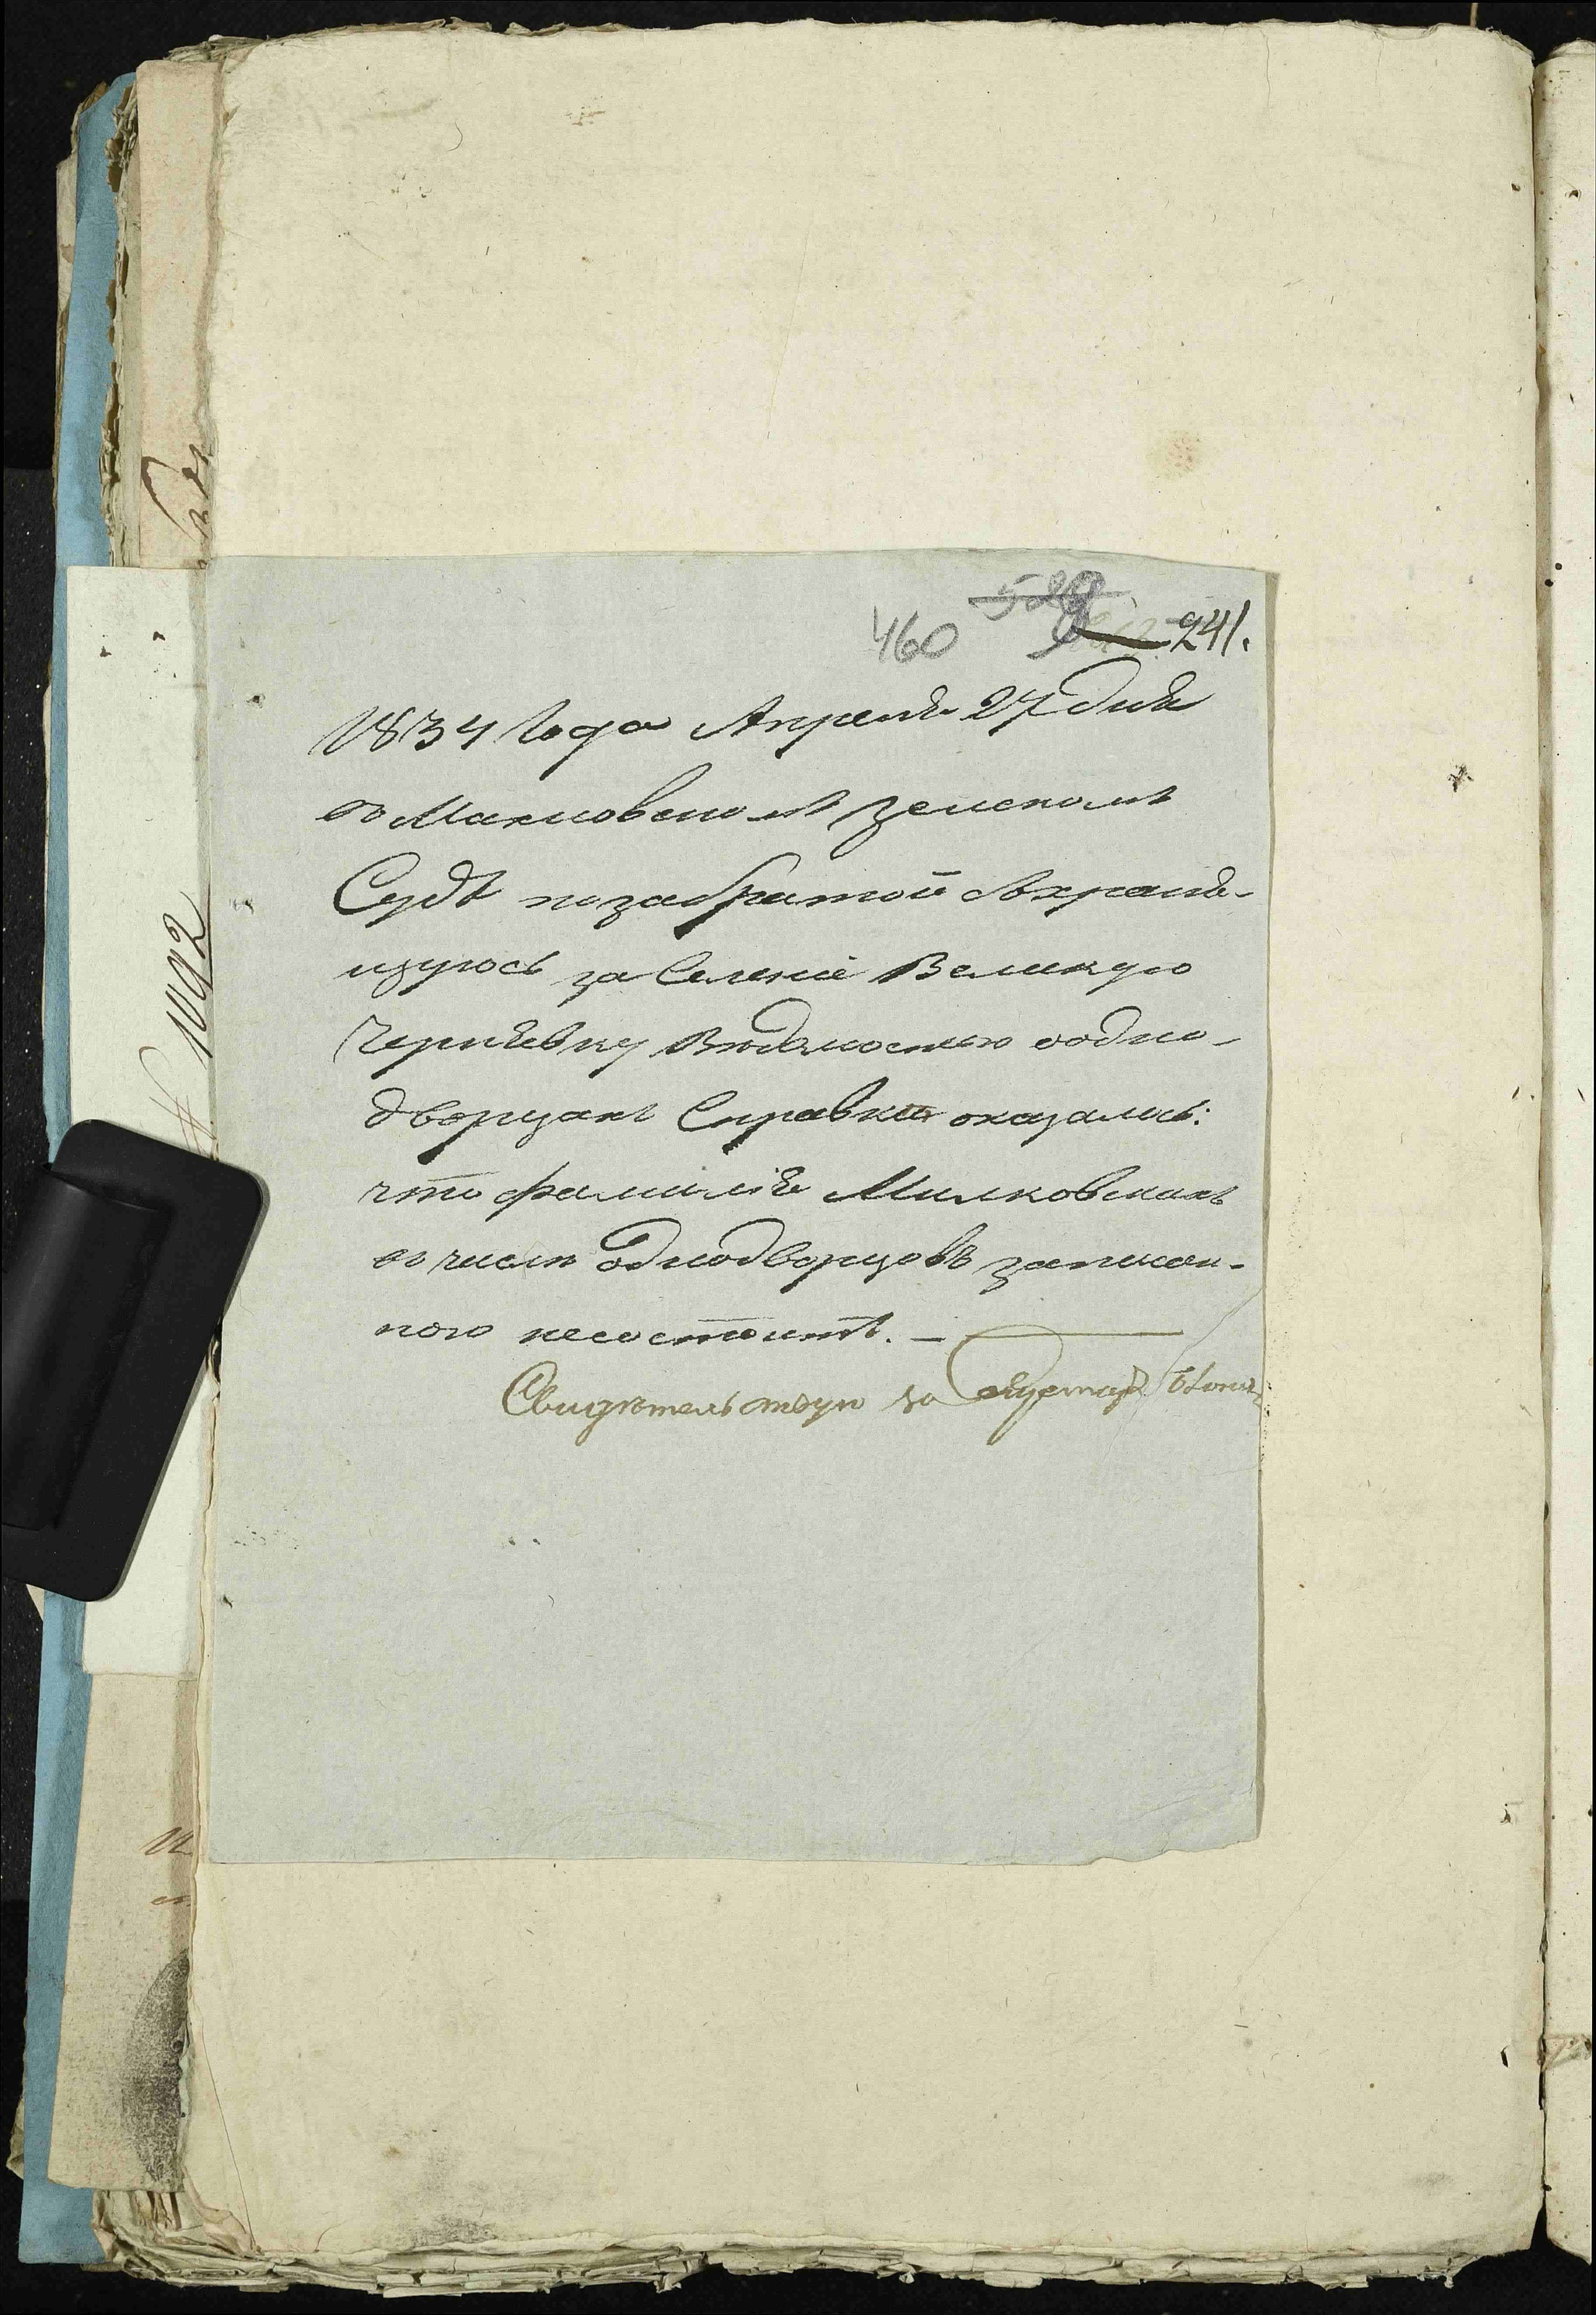 460
241.
1834 года Апреля 27 дня
въ Махновскомъ земскомъ
Судѣ по забратой с храня-
щуюсь за Селеніе Великую
Чернявку Вѣдомостью о одно-
дворцахъ Справки оказалось:
что фамилія Милковскихъ
въ числѣ Однодворцовъ записан-
ного несостоитъ. —
Свидѣтельствую за Секретаря
№ 1092